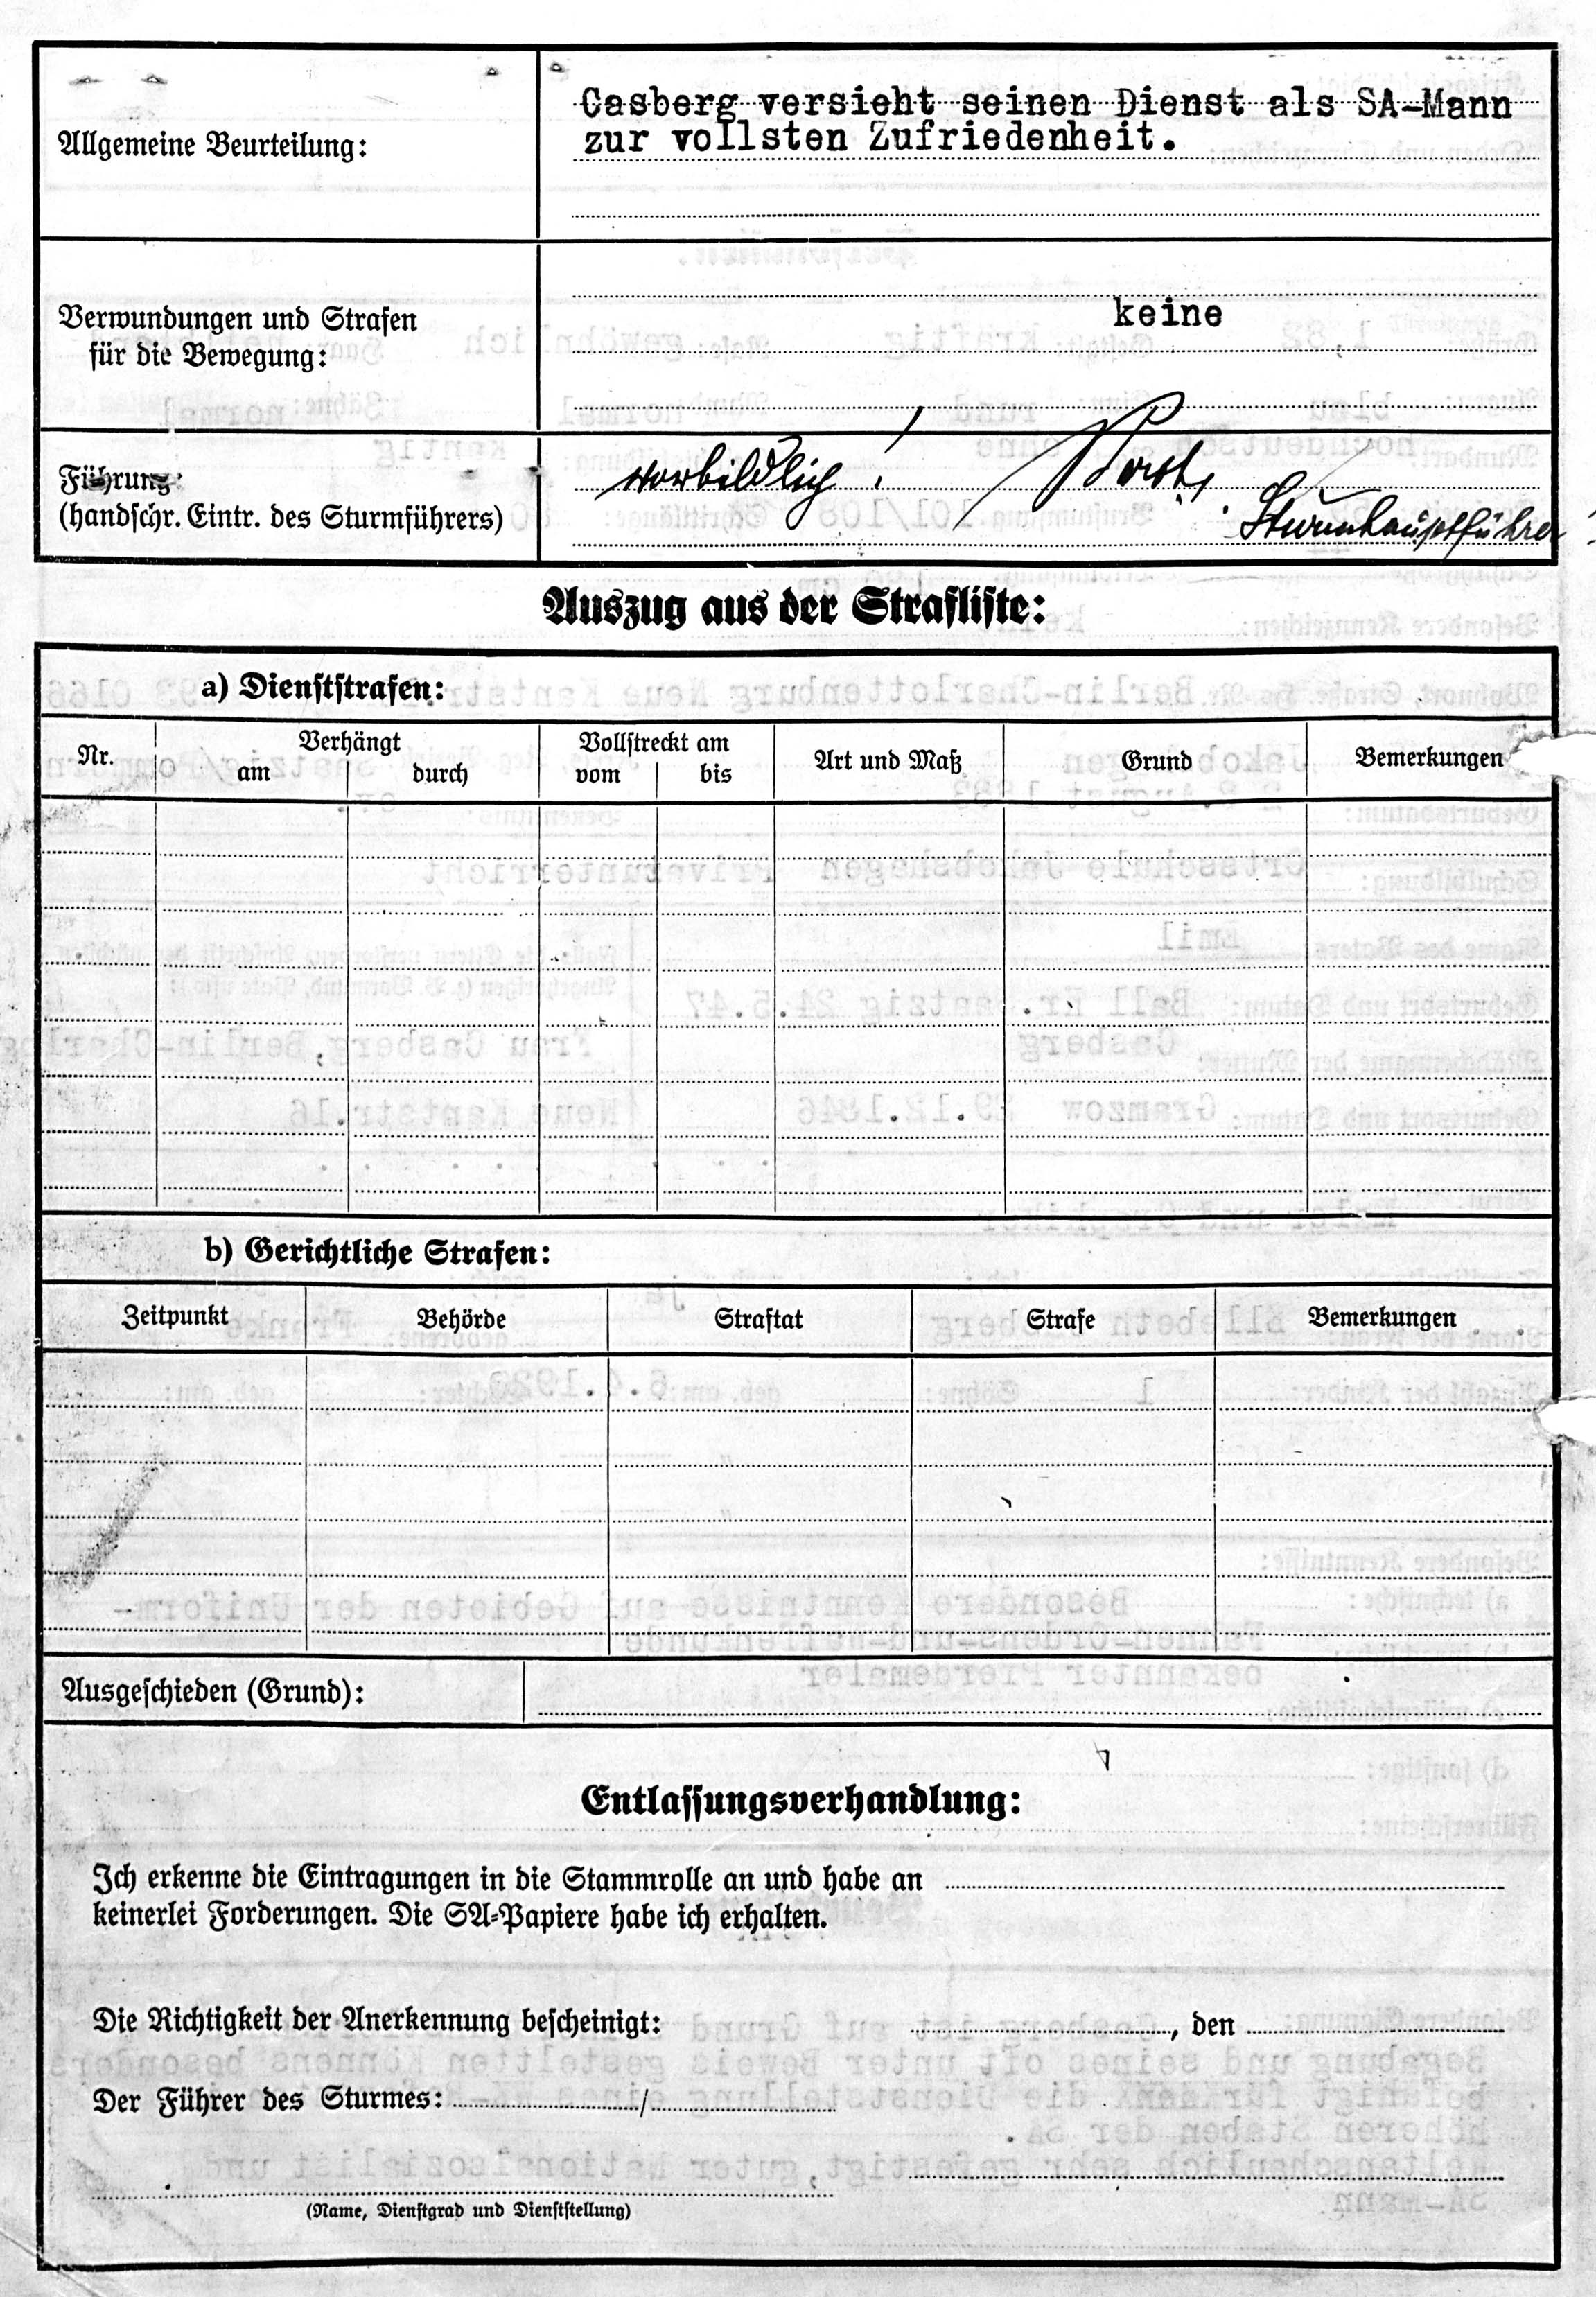 Allgemeine Beurteilung:
Casberg versieht seinen Dienst als SA-Mann
zur vollsten Zufriedenheit.
Verwundungen und Strafen
für die Bewegung:
keine
Führung:
(handschr. Eintr. des Sturmführers)
vorbildlich!
Sturmhauptführer
Auszug aus der Strafliste:
a) Dienststrafen:
Nr.
Verhängt
am durch
Vollstreckt am
vom bis
Art und Maß
Grund
Bemerkungen
b) Gerichtliche Strafen:
Zeitpunkt Behörde Straftat Strafe Bemerkungen
Ausgeschieden (Grund):
Entlassungsverhandlung:
Ich erkenne die Eintragungen in die Stammrolle an und habe an
keinerlei Forderungen. Die SA-Papiere habe ich erhalten.
Die Richtigkeit der Anerkennung bescheinigt: , den
Der Führer des Sturmes: /
(Name, Dienstgrad und Dienststellung)